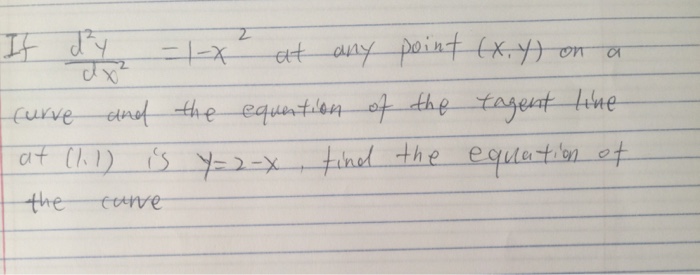 If d²y/dx² = 1-x² at any point (x,y) on a
curve and the equation of the tagent line
at (1,1) is y=2-x, find the equation of
the curve